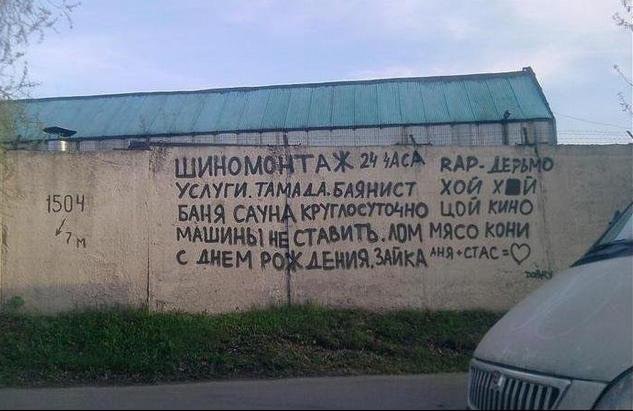 ШИНОМОНТАЖ 24 ЧАСА RAP-ДЕРЬМО
УСЛУГИ. ТАМАДА. БАЯНИСТ ХОЙ Х■Й
БАНЯ САУНА КРУГЛОСУТОЧНО ЦОЙ КИНО
МАШИНЫ НЕ СТАВИТЬ. ЛОМ МЯСО КОНИ
С ДНЕМ РОЖДЕНИЯ, ЗАЙКА АНЯ + СТАС = ♡
1504
7 М